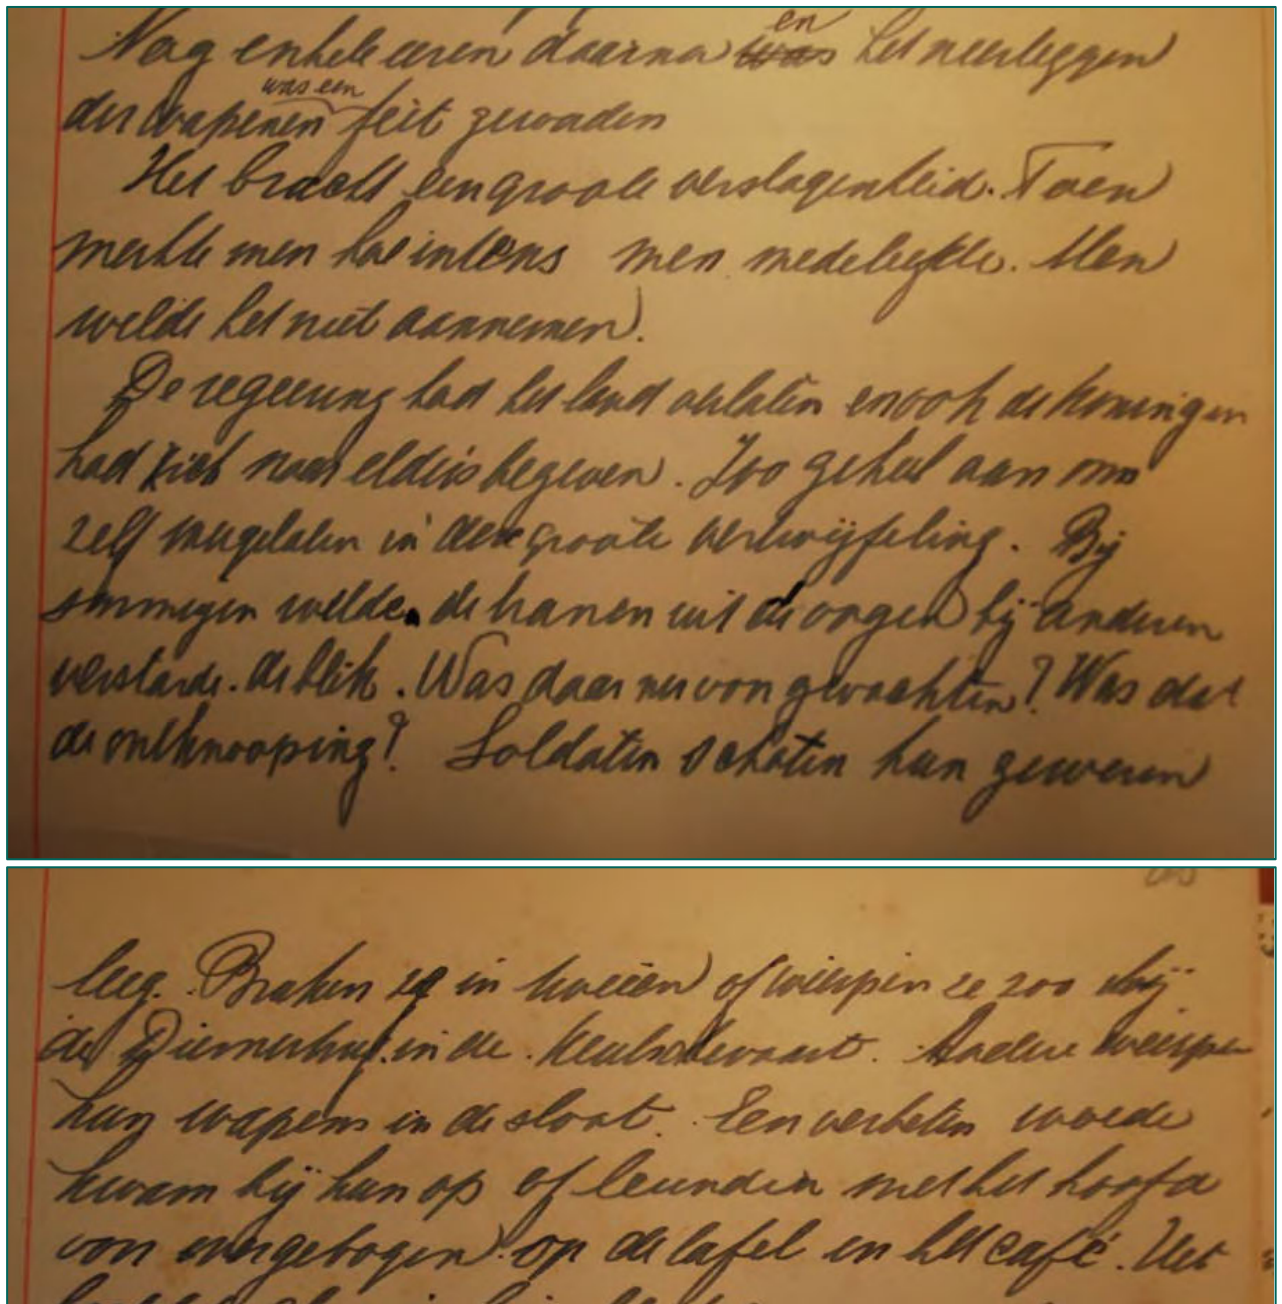 Nog enkele uren daarna ~~was~~ en het neerleggen
der wapenen was een feit geworden
Het bracht een groote verslagenheid. Toen
merkte men hoe intens men medeleefde. Men
wilde het niet aannemen.
De regeering had het land verlaten en ook de Koningin
had zich naar elders begeven. Zoo geheel aan ons
zelf overgelaten in deze groote vertwijfeling. Bij
sommigen welden de tranen uit de oogen bij anderen
verstarde de blik. Was daar nu voor gevochten? Was dat
de ontknooping? Soldaten schoten hun geweren
leeg. Braken ze in tweeën of wierpen ze zoo bij
de Diemerbrug in de Keulschevaart. Andere wierpen
hun wapens in de sloot. Een verbeten woede
kwam bij hun op of leunden met het hoofd
voorovergebogen op de tafel in het café. Het